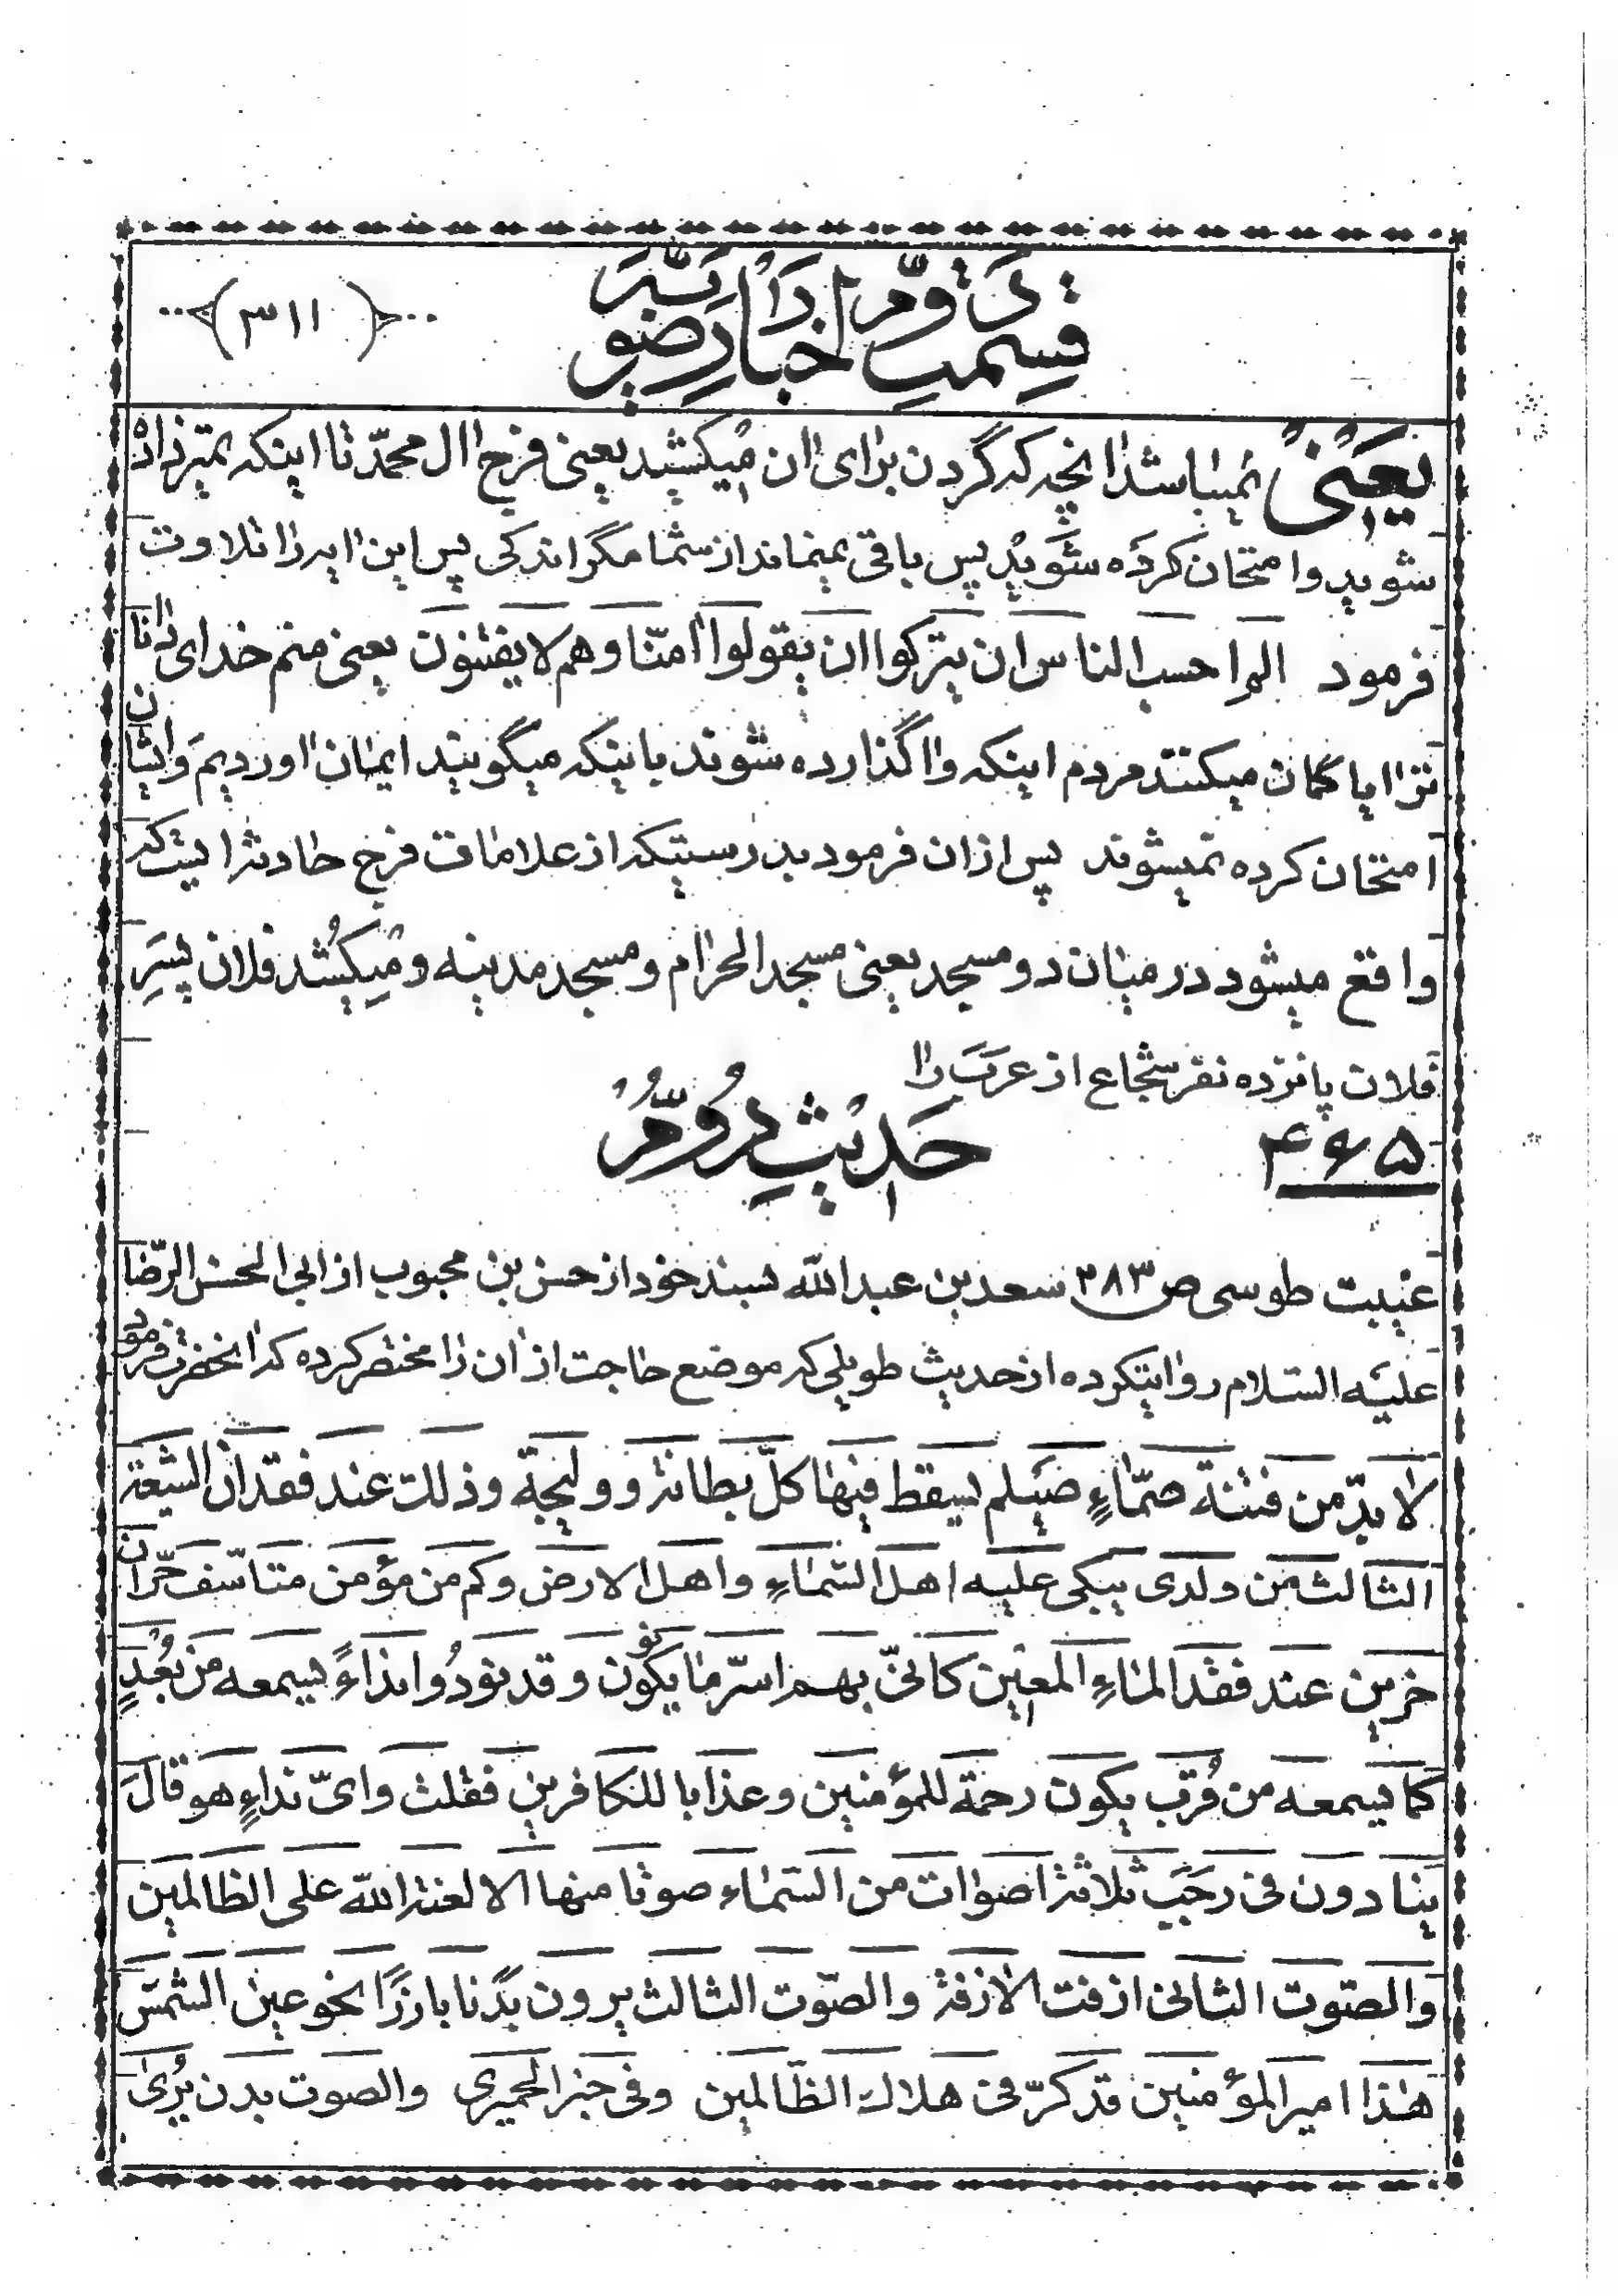 قسمت دوّم در اخبار رضویّه
(۳۱۱)
یعنی نمیباشد انچه که گردن برای ان میکشید یعنی فرج ال محمّد تا اینکه تمیز داده
شوید و امتحان کرده شوید پس باقی نمیماند از شما مگر اندکی پس این ایه را تلاوت
فرمود الم احسب الناس ان یترکوا ان یقولوا امنّا و هم لا یفتنون یعنی منم خدای دانا
تر ایا گمان میکنند مردم اینکه واگذارده شوند باینکه میگویند ایمان اوردیم و ایشان
امتحان کرده نمیشوند پس از ان فرمود بدرستیکه از علامات فرج حادثه ایست که
واقع میشود در میان دو مسجد یعنی مسجد الحرام و مسجد مدینه و میکشد فلان پسر
فلان پانزده نفر شجاع از عرب را
۴۶۵
حدیث دوّم
غیبت طوسی ص ۲۸۳ سعد بن عبد الله بسند خود از حسن بن محبوب از ابی الحسن الرّضا
علیه السّلام روایتکرده از حدیث طویلی که موضع حاجت از ان را مختصر کرده که انحضرت فرمود
لا بدّ من فتنة صمّاءٍ صیلم یسقط فیها کلّ بطانة و ولیجة و ذلک عند فقدان الشیعة
الثالث من ولدی یبکی علیه اهل السّماءِ و اهل الارض و کم من مؤمن متاسّف حرّان
حزین عند فقد الماءِ المعین کانّی بهم اسرّ ما یکونون و قد نودُوا نداءً یسمعه من بُعدٍ
کما یسمعه من قُرب یکون رحمة للمؤمنین و عذابا للکافرین فقلت و ایّ نداءٍ هو قال
ینادون فی رجب ثلاثة اصوات من السّماء صوتا منها الا لعنة الله علی الظالمین
و الصّوت الثانی ازفت الازفة و الصّوت الثالث یرون بدنا بارزًا نحو عین الشمس
هذا امیر المؤمنین قد کرّ فی هلاک الظّالمین و فی خبر الحمیری و الصوت بدن یُری